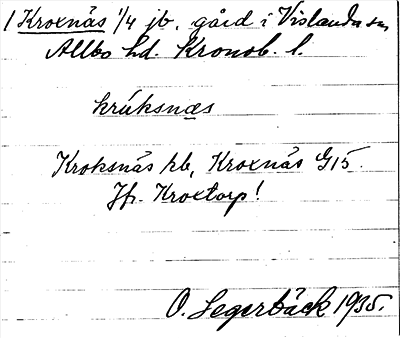 1 Kroxnäs 1/4 jb. gård i Vislanda sn
Allbo hd. Kronob. l.
krúksnæs
Kroksnäs kb, Kroxnäs G15.
Jfr. Kroxtorp!
O. Segerbäck 1935.